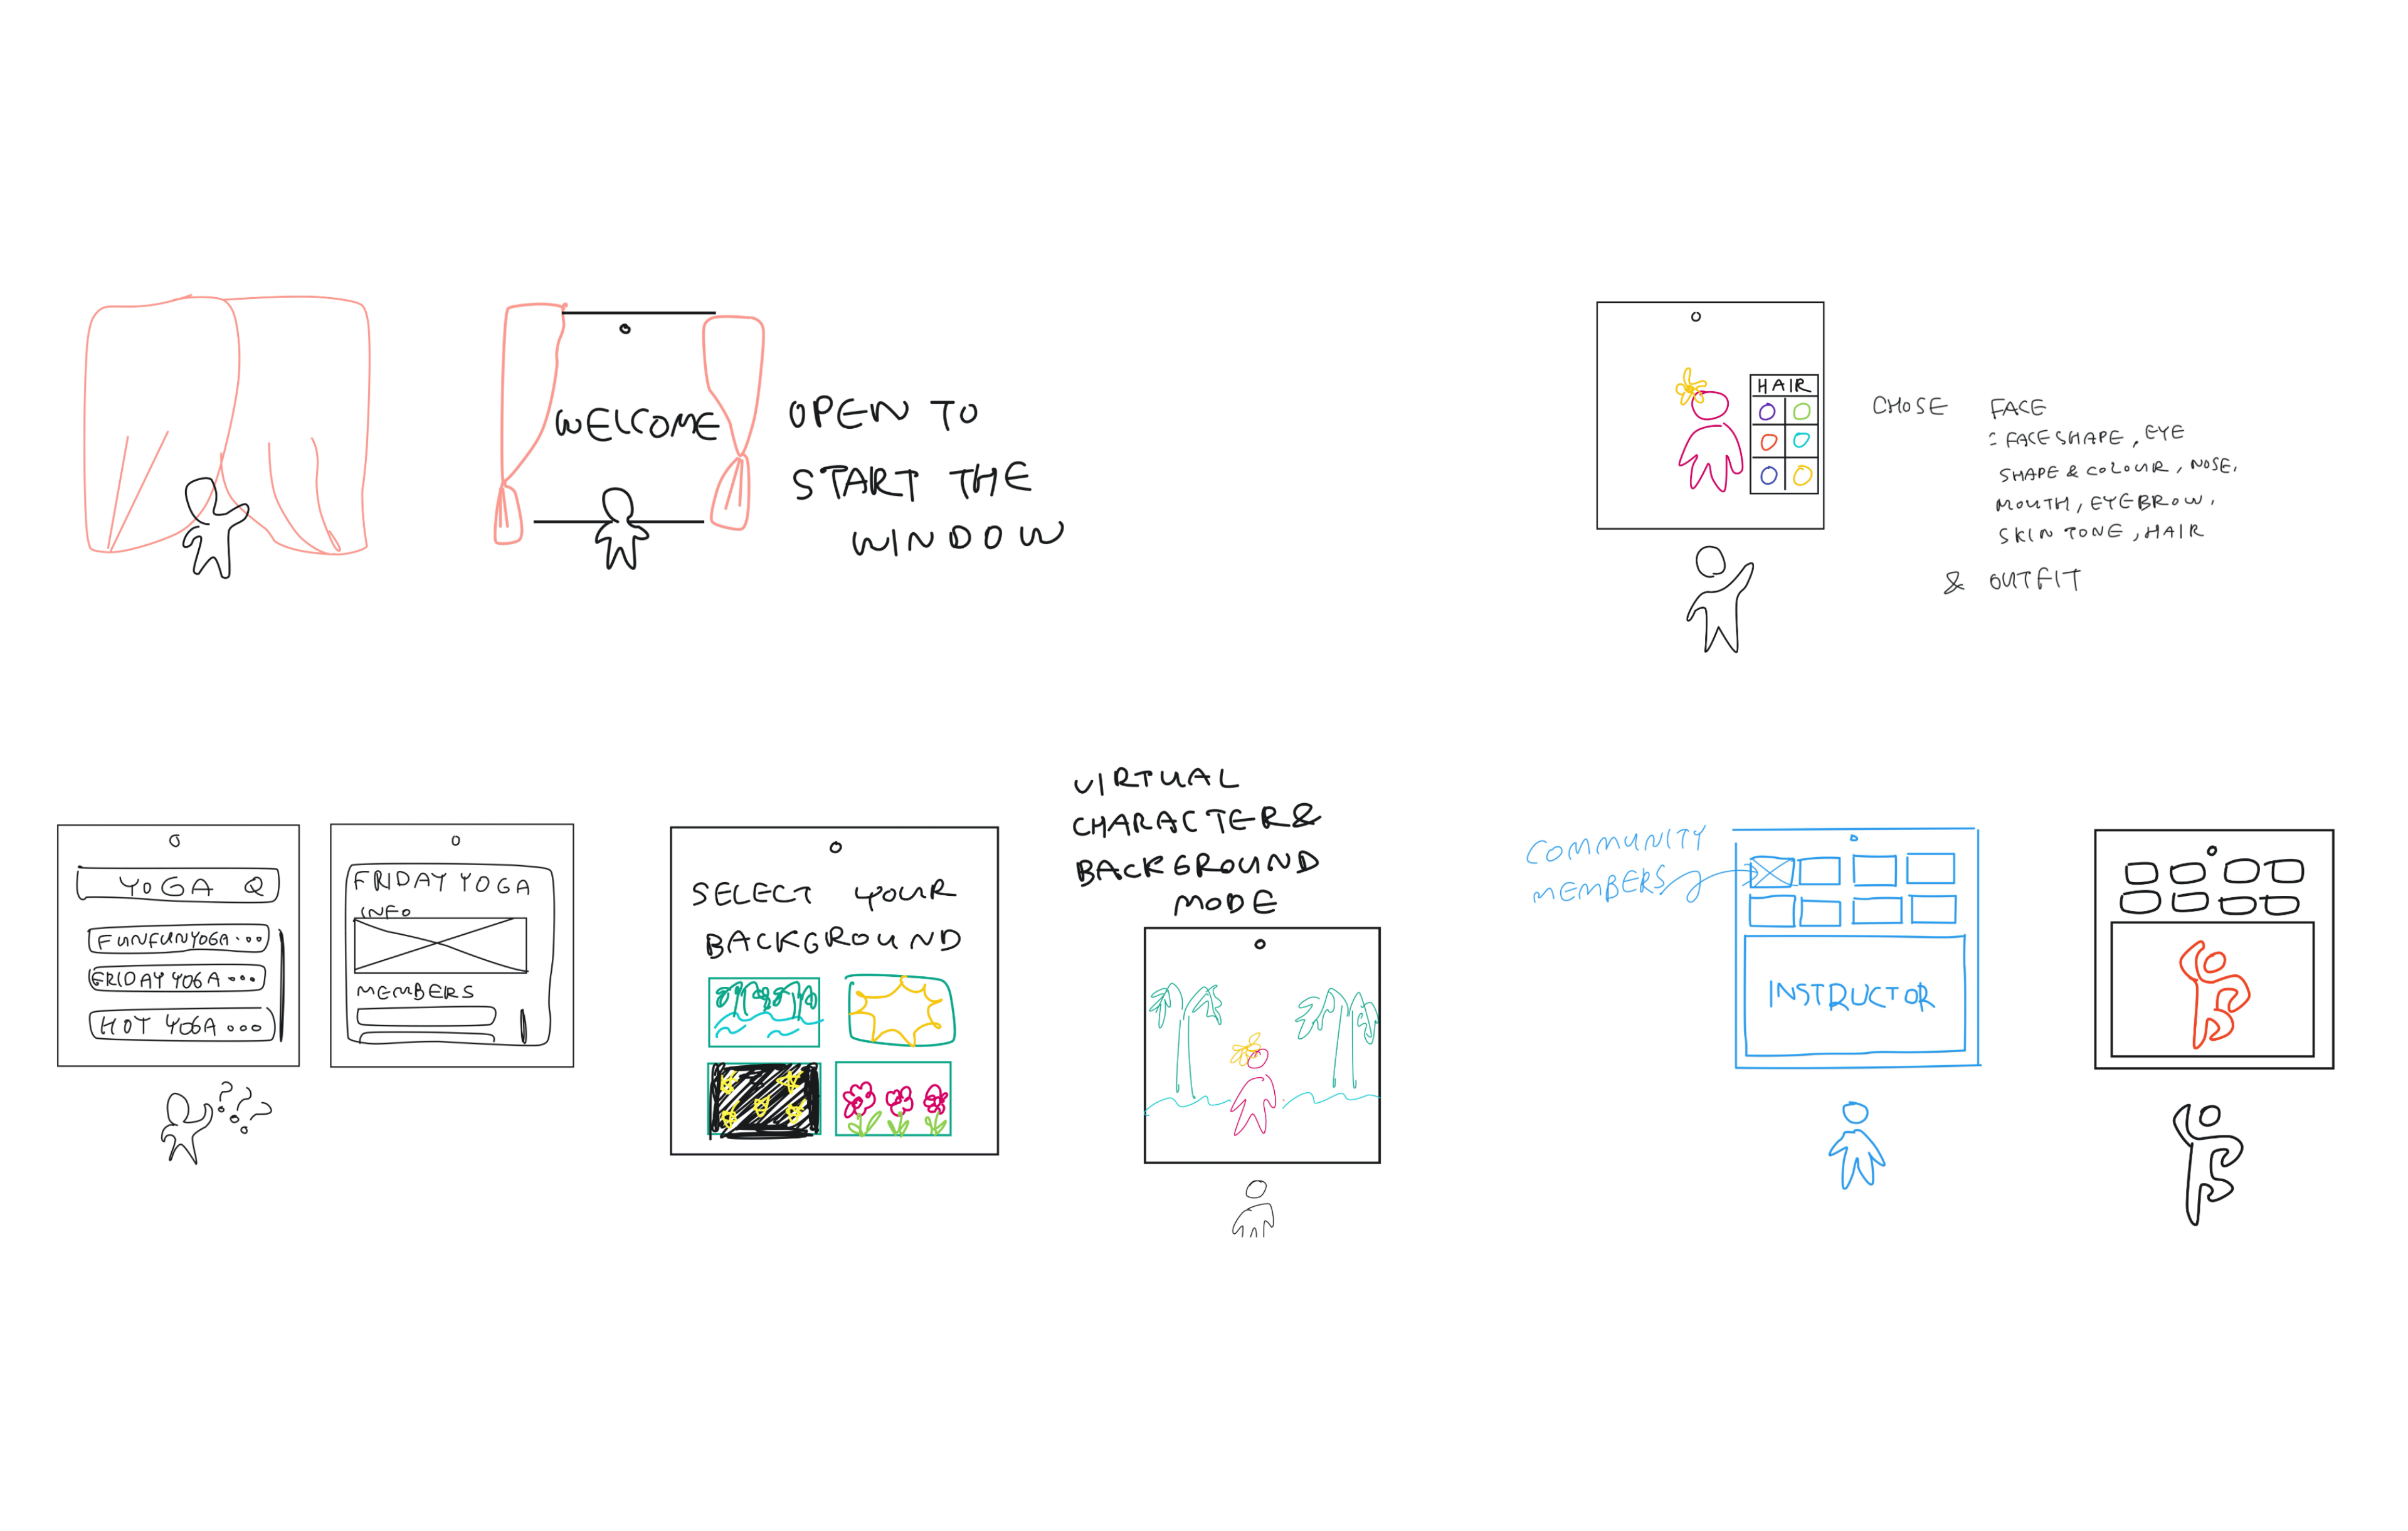 WELCOME
OPEN TO
START THE
WINDOW
HAIR
CHOSE FACE
= FACE SHAPE, EYE
SHAPE & COLOUR, NOSE,
MOUTH, EYEBROW,
SKIN TONE, HAIR
& OUTFIT
YOGA
FUNFUNYOGA...
FRIDAY YOGA...
HOT YOGA...
???
FRIDAY YOGA
INFO
MEMBERS
SELECT YOUR
BACKGROUND
VIRTUAL
CHARACTER &
BACKGROUND
MODE
COMMUNITY
MEMBERS
INSTRUCTOR